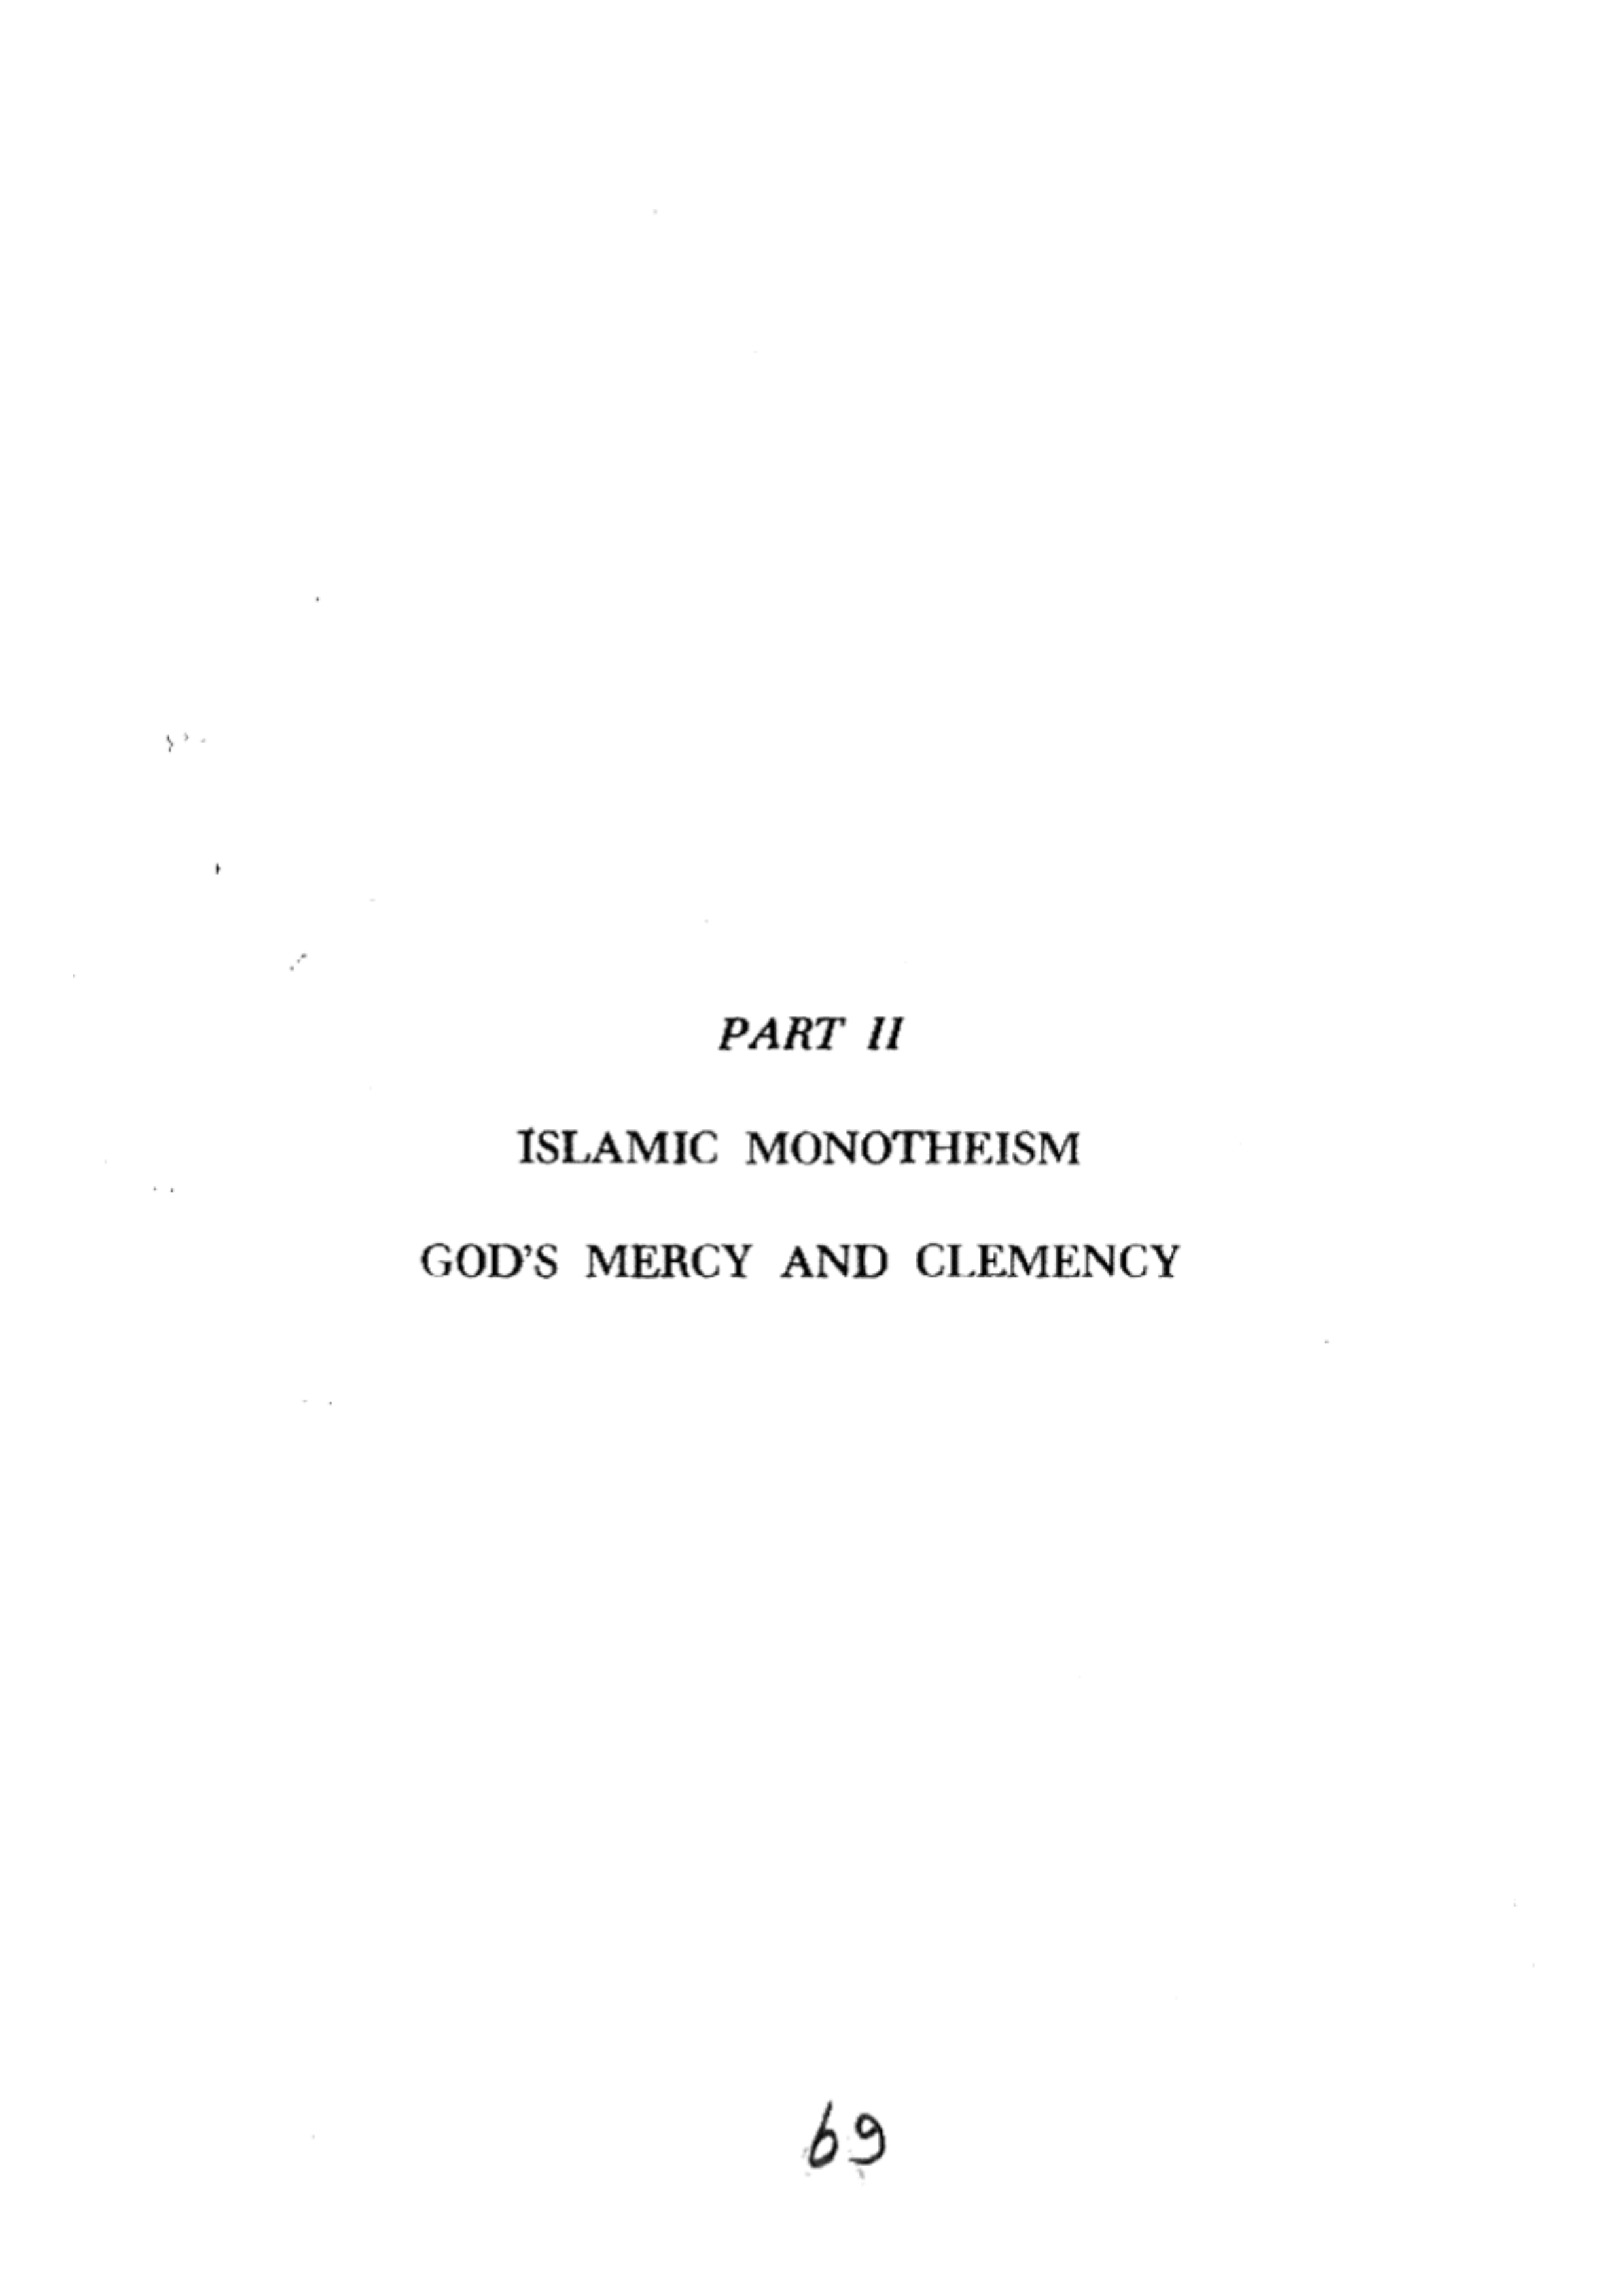 PART II
ISLAMIC MONOTHEISM
GOD'S MERCY AND CLEMENCY
69